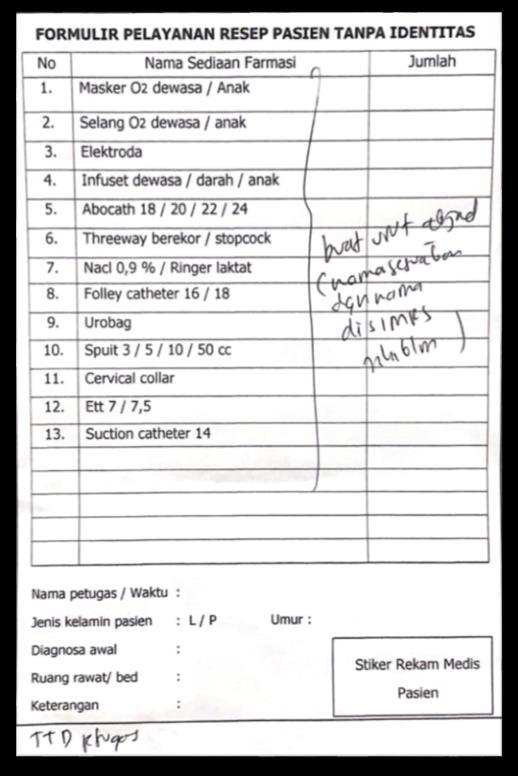 FORMULIR PELAYANAN RESEP PASIEN TANPA IDENTITAS
No Nama Sediaan Farmasi Jumlah
1. Masker O2 dewasa / Anak
2. Selang O2 dewasa / anak
3. Elektroda
4. Infuset dewasa / darah / anak
5. Abocath 18 / 20 / 22 / 24
6. Threeway berekor / stopcock
7. Nacl 0,9 % / Ringer laktat
8. Folley catheter 16 / 18
9. Urobag
10. Spuit 3 / 5 / 10 / 50 cc
11. Cervical collar
12. Ett 7 / 7,5
13. Suction catheter 14
buat urut
(nama sesuaikan
dgn nama
di SIMRS
)
Nama petugas / Waktu :
Jenis kelamin pasien : L / P Umur :
Diagnosa awal :
Ruang rawat/ bed :
Keterangan :
Stiker Rekam Medis
Pasien
TTD petugas